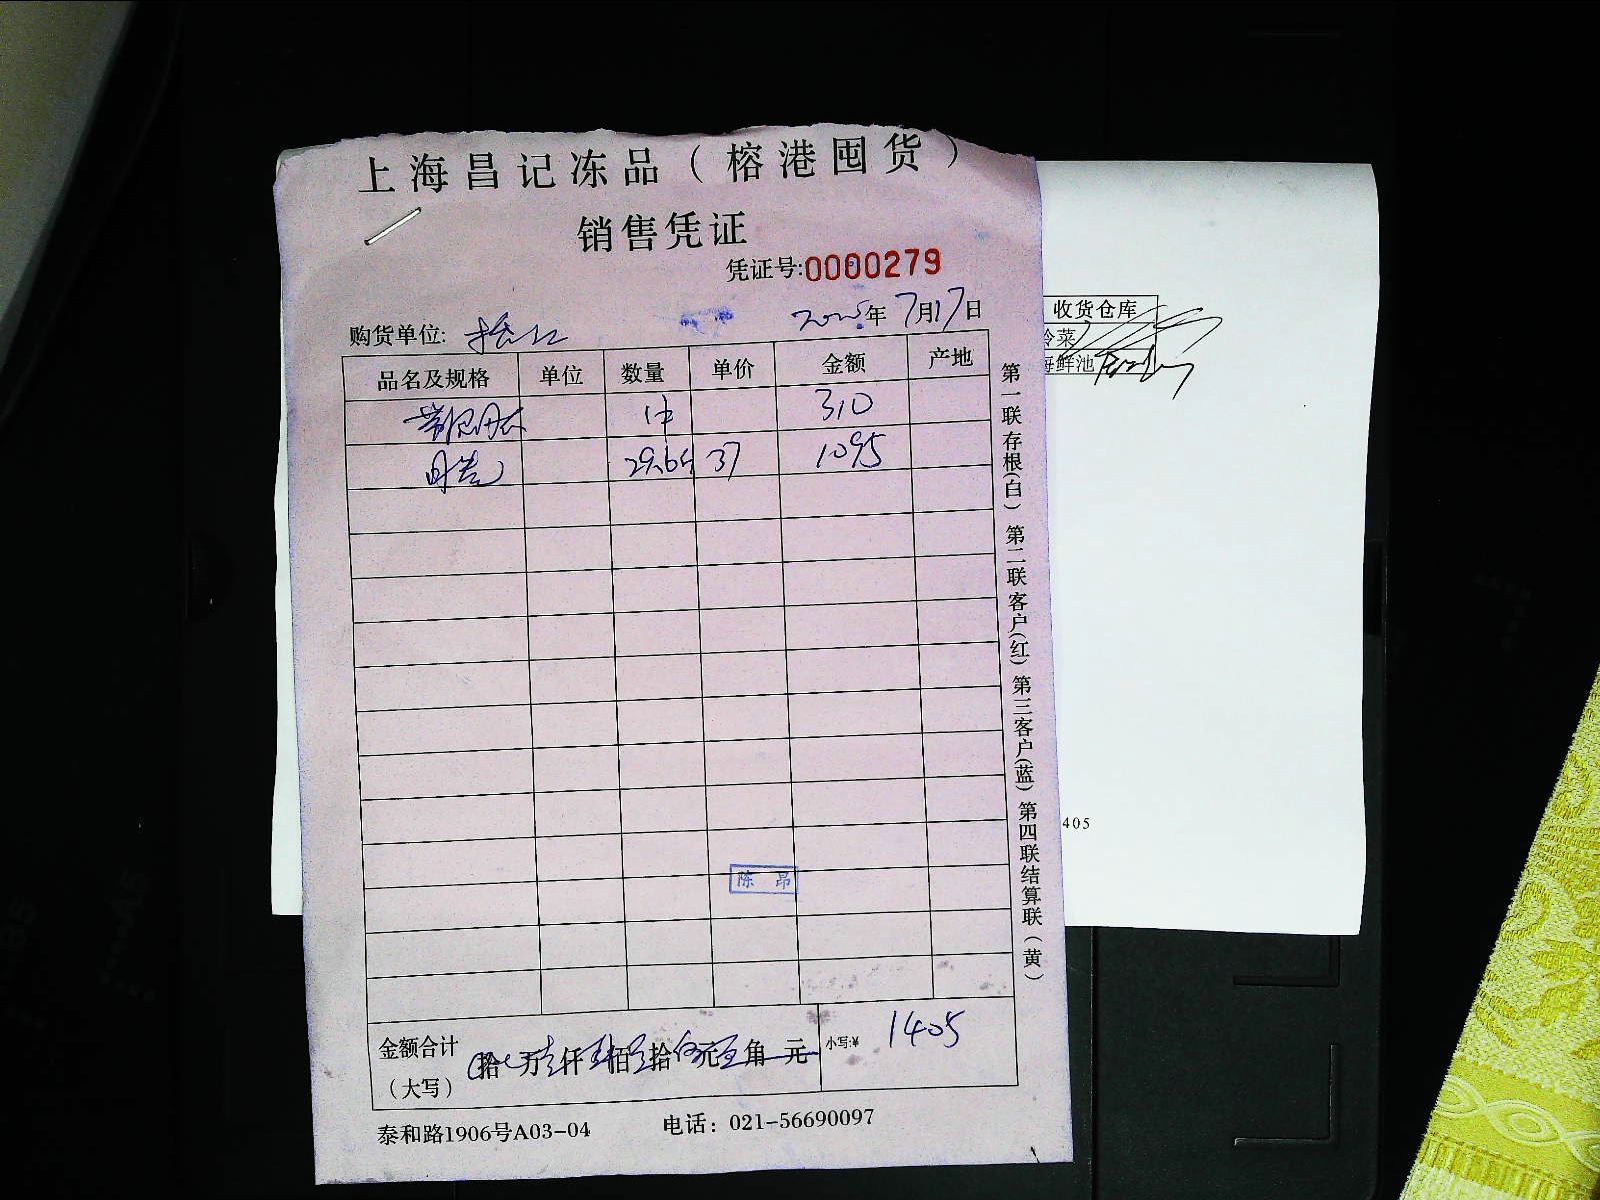 上海昌记冻品（榕港囤货）
销售凭证
凭证号:0000279
购货单位:
2025年7月17日
品名及规格 单位 数量 单价 金额 产地
1件 310
29.6斤 37 1095
陈昂
金额合计（大写） 拾 万 仟 佰 拾 元 角 元 小写:¥ 1405
泰和路1906号A03-04 电话：021-56690097
第一联存根(白) 第二联客户(红) 第三客户(蓝) 第四联结算联(黄)
收货仓库
冷菜
海鲜池
405